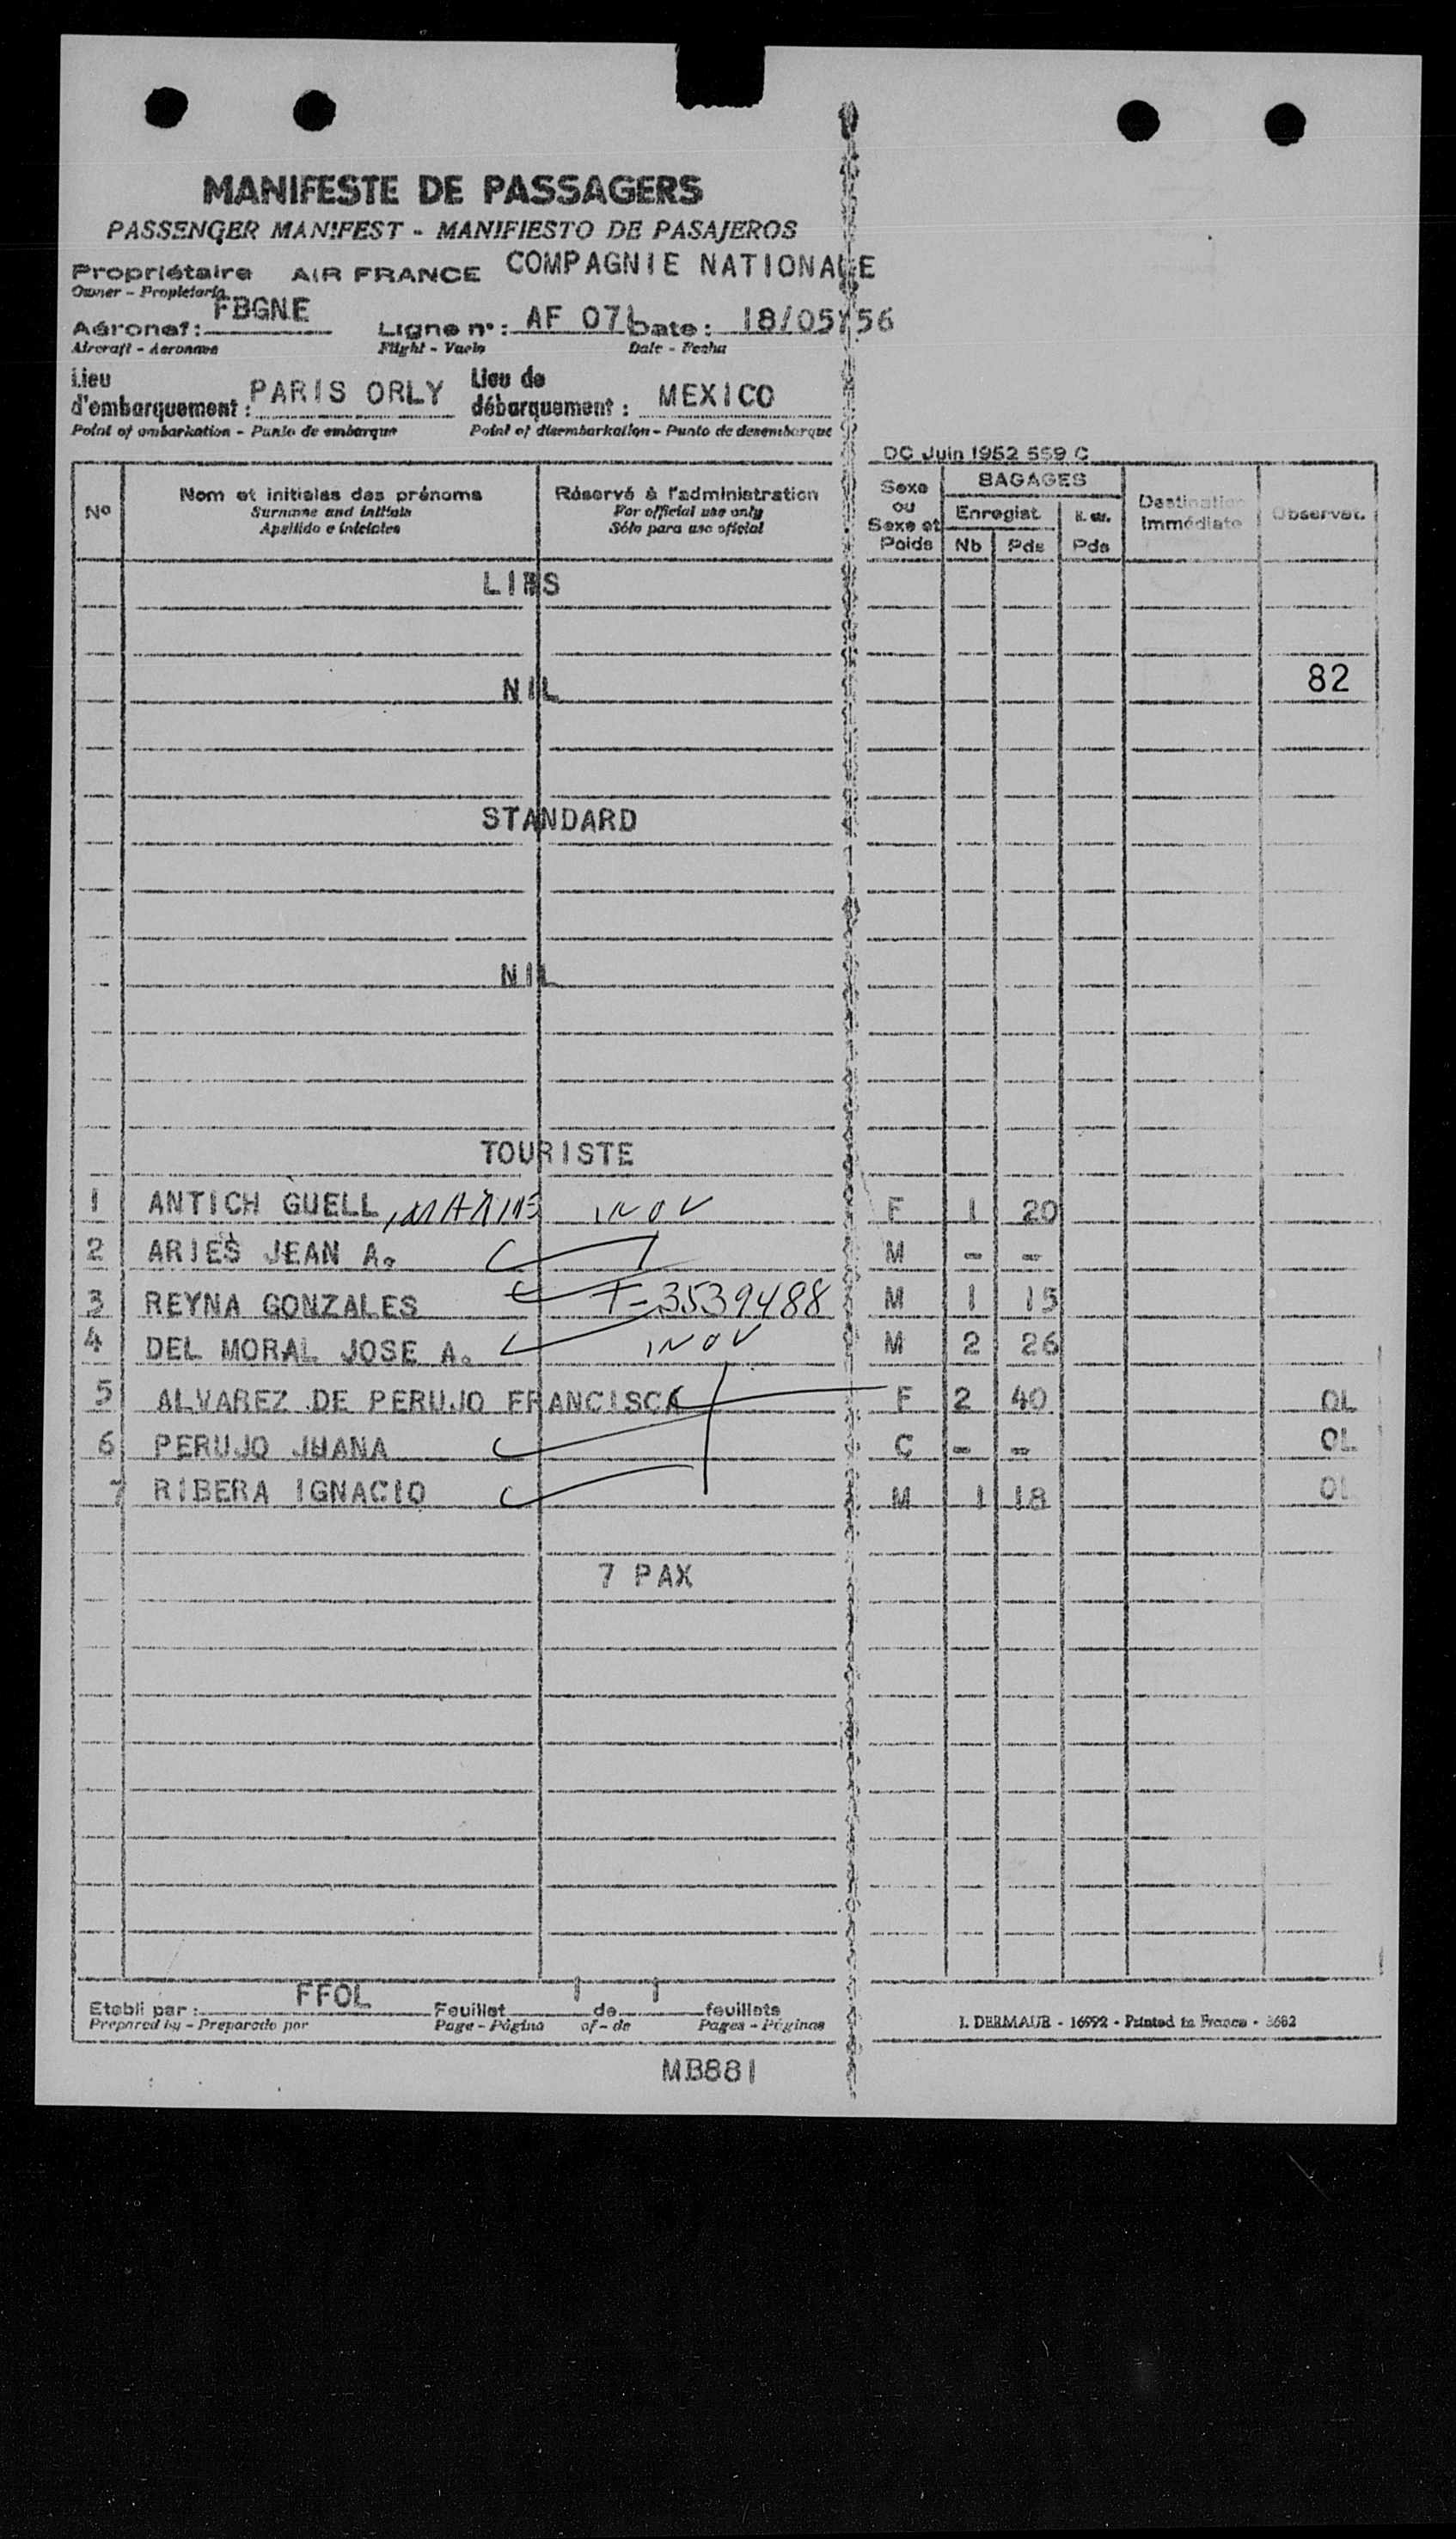 MANIFESTE DE PASSAGERS
PASSENGER MANIFEST - MANIFIESTO DE PASAJEROS
Propriétaire AIR FRANCE COMPAGNIE NATIONALE
Owner - Propietario
Aéronef: FBGNE Ligne n°: AF 071 Date: 18/05/56
Aircraft - Aeronave Flight - Vuelo Date - Fecha
Lieu d'embarquement: PARIS ORLY Lieu de débarquement: MEXICO
Point of embarkation - Punto de embarque Point of disembarkation - Punto de desembarque
DC Juin 1952 559 C
N° Nom et initiales des prénoms Réservé à l'administration Sexe ou Sexe et Poids BAGAGES Destination Immédiate Observat.
Surname and initials For official use only Enregist.
Apellido e iniciales Sólo para uso oficial Nb Pds Pds
LITS
NIL 82
STANDARD
NIL
TOURISTE
1 ANTICH GUELL, MARIE INOV F 1 20
2 ARIES JEAN A. M - -
3 REYNA GONZALES T-3539488 M 1 15
4 DEL MORAL JOSE A. INOV M 2 26
5 ALVAREZ DE PERUJO FRANCISCA F 2 40 OL
6 PERUJO JUANA C - - OL
7 RIBERA IGNACIO M 1 18 OL
7 PAX
Etabli par: FFOL Feuillet 1 de 1 feuillets
Prepared by - Preparado por Page - Página of - de Pages - Páginas
J. DERMAUR - 16992 - Printed in France - 3682
MB881